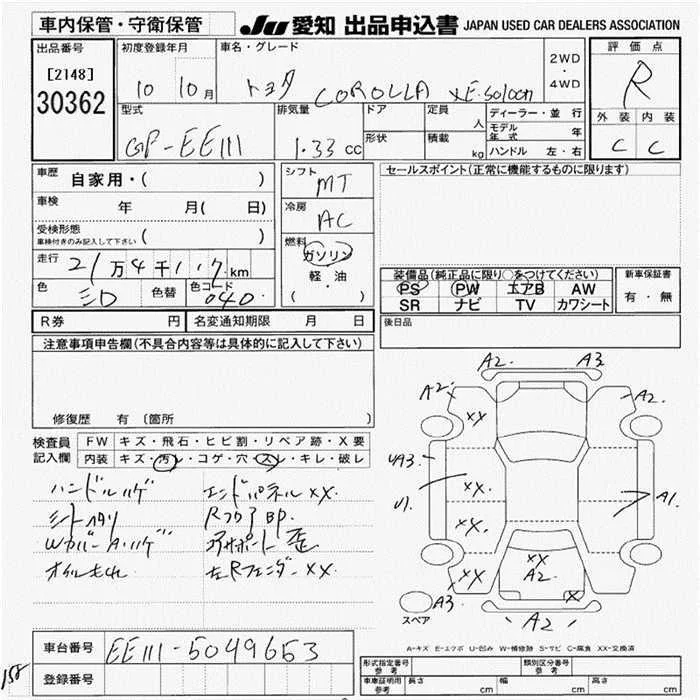 車内保管・守衛保管
JU 愛知 出品申込書 JAPAN USED CAR DEALERS ASSOCIATION
出品番号
[2148]
30362
初度登録年月
10 10月
車名・グレード
トヨタ COROLLA XE.Soloon
2WD
・
4WD
評価点
R
外装 内装
C C
型式
GF-EE111
排気量
1.33 cc
ドア
形状
定員 人
積載 kg
ディーラー・並行
モデル年式 年
ハンドル 左・右
車歴 自家用・( )
車検 年 月( 日)
受検形態
車検付きのみ記入して下さい ( )
走行 21万4千117km
色 シロ 色替 色コード 040
シフト
MT
冷房
AC
燃料
ガソリン
軽・油
( )
セールスポイント(正常に機能するものに限ります)
装備品(純正品に限り○をつけてください)
PS PW エアB AW
SR ナビ TV カワシート
新車保証書
有・無
R券 円 名変通知期限 月 日
後日品
注意事項申告欄(不具合内容等は具体的に記入して下さい)
修復歴 有 〔箇所 〕
検査員記入欄
FW キズ・飛石・ヒビ割・リペア跡・X要
内装 キズ・汚レ・コゲ・穴・スレ・キレ・破レ
ハンドルハゲ エンドパネルXX.
シートヘタリ RフロアBP.
WカバーA・ハゲ サポート歪
オイルもれ 左RフェンダーXX.
A2. A3
A2. A2.
XX
UA3.
XX.
U1. A1.
XX.
XX
XX A2. X
A3.
A2
スペア
A-キズ E-エクボ U-凹み W-補修跡 S-サビ C-腐食 XX-交換済
車台番号 EE111-5049653
登録番号
158
形式指定番号参考 類別区分番号参考
車庫証明用参考 長さ cm 幅 cm 高さ cm